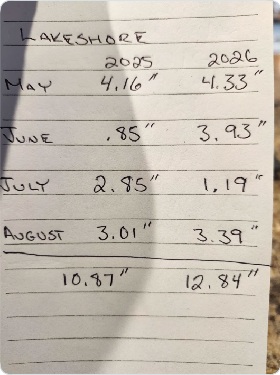 LAKESHORE
2025 2026
MAY 4.16" 4.33"
JUNE .85" 3.93"
JULY 2.85" 1.19"
AUGUST 3.01" 3.39"
10.87" 12.84"